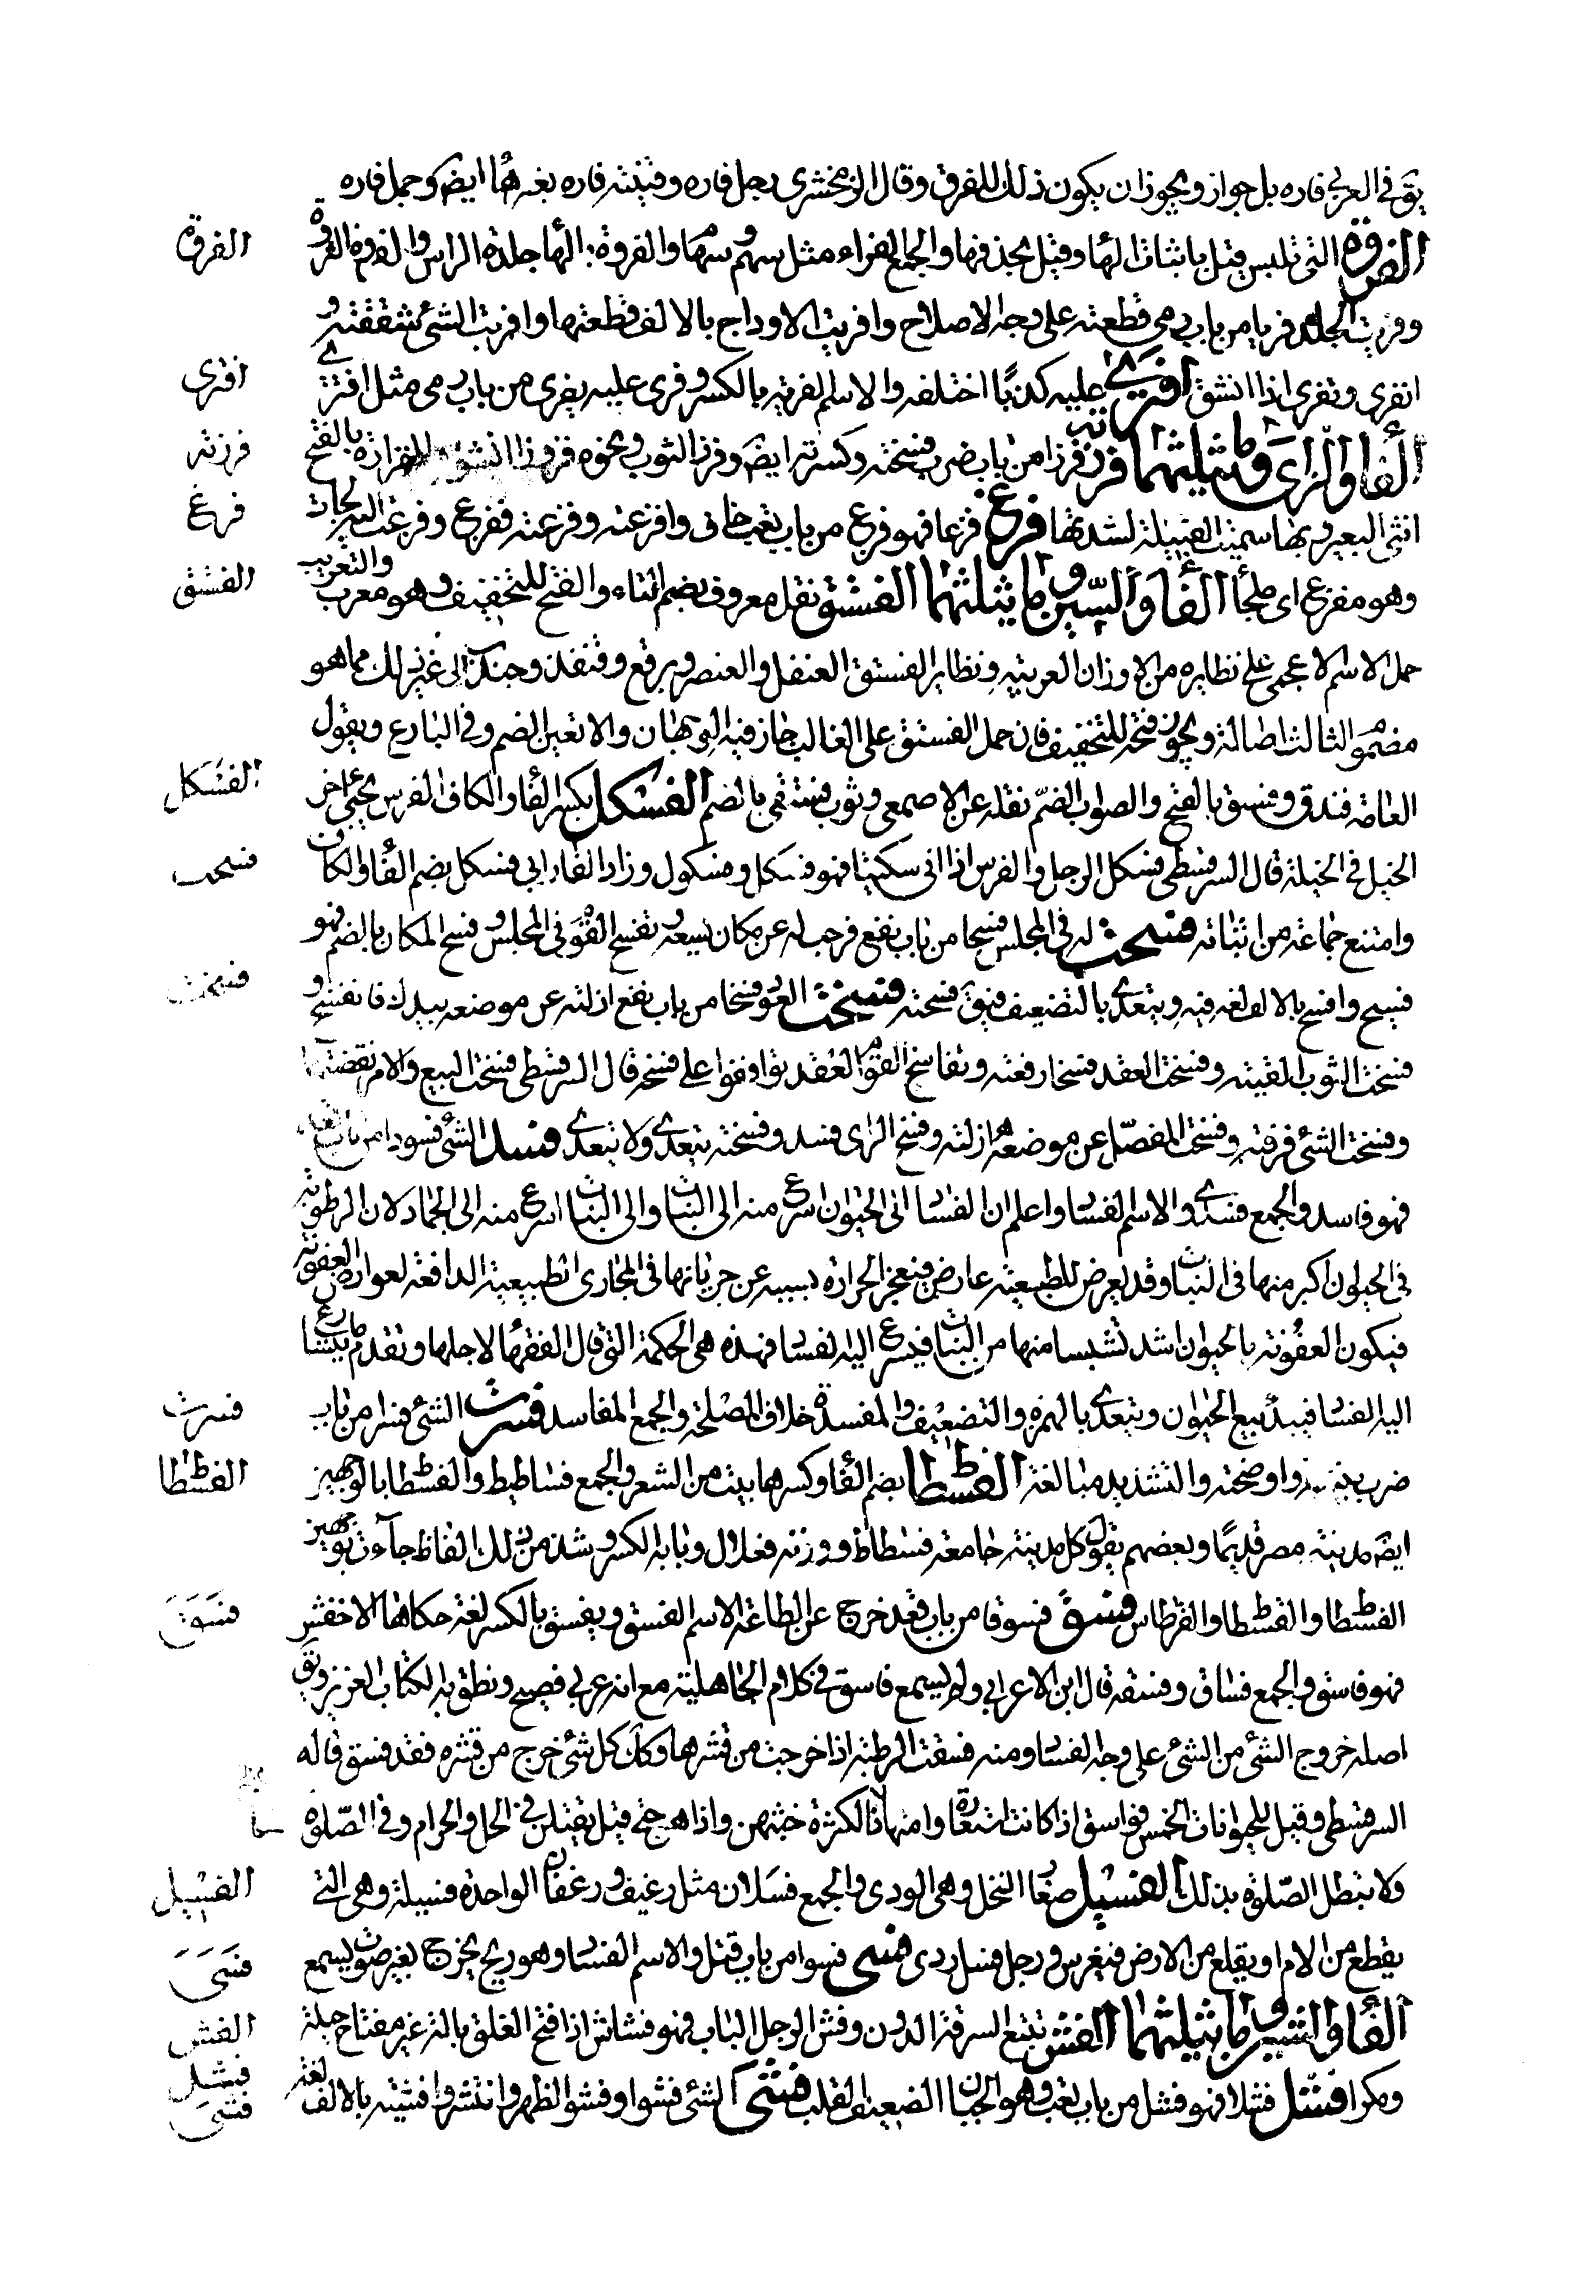 يق في العربي فاره بل جواز ويجوز ان يكون ذلك للفرق وقال الزمخشري رجل فاره وقينة فاره بغير هاء ايض وجمل فاره
الفروة التي تلبس قيل باثبات الهاء وقيل بحذفها والجمع الفراء مثل سهم وسهام والفروة بالهاء جلدة الراس
الفروة
وفريت الجلد فريا من باب رمي قطعته على وجه الاصلاح وافريت الاوداج بالالف قطعتها وافريت الشئ شققته
انفرى وتفرى اذا انشق افترى عليه كذبا اختلقه والاسم الفرية بالكسر وفرى عليه يفرى من باب رمى مثل افترى
افترى
الفا والزاى وما يثلثهما فزرته فزرا من باب ضرب فسخته وكسرته ايض وفزر الثوب ونحوه فزورا انشق الفزارة بالفتح
فزرته
انثى الببر وبها سميت القبيلة لشدتها فزع فزعا فهو فزع من باب تعب خاف وافزعته وفزعته ففزع وفزعت اليه لجات
فزع
وهو مفزع اى ملجأ الفا والسين وما يثلثهما الفستق نقل معروف بضم التاء والفتح للتخفيف وهو معرب والتعريب
الفستق
حمل الاسم الاعجمي على نظايره من الاوزان العربية ونظاير الفستق العنصل والعنصر وبرقع وقنفذ وجندب الى غير ذلك مما هو
مضموم الثالث اصالة ويجوز فتحه للتخفيف فان حمل الفستق على الغالب جاز فيه الوجهان والا تعين الضم وفي البارع ويقول
العامة فندق وفستق بالفتح والصواب الضم نقله عن الاصمعي وثوب فستقي بالضم الفسكل بكسر الفا والكاف الفرس يجئ اخر
الفسكل
الخيل في الحلبة قال السرقسطي فسكل الرجل والفرس اذا اتى سكيتا فهو فسكل ومفسكول وزاد الفارابي فسكل بضم الفا والكاف
وامتنع جماعة من اثباته فسحت له في المجلس فسحا من باب نفع فرجت له عن مكان يسعه وتفسح القوم في المجلس وفسح المكان بالضم فهو
فسحت
فسيح وافسح بالالف لغة فيه ويتعدى بالتضعيف فيق فسحته فسخت العود فسخا من باب نفع ازلته عن موضعه بيدك فانفسخ و
فسخت
فسخت الثوب القيته وفسخت العقد فسخا رفعته وتفاسخ القوم العقد توافقوا على فسخه قال السرقسطي فسخت البيع والامر نقضتهما
وفسخت الشئ فرقته وفسخت المفصل عن موضعه ازلته وفسخ الراى فسد وفسخته يتعدى ولا يتعدى فسد الشئ فسودا من باب قعد
فهو فاسد والجمع فسدى والاسم الفساد واعلم ان الفساد الى الحيوان اسرع منه الى النبات والى النبات اسرع منه الى الجماد لان الرطوبة
في الحيوان اكثر منها في النبات وقد يعرض للطبيعة عارض فتعجز الحرارة بسببه عن جريانها في المجارى الطبيعية الدافعة لعوارض العفونة
فيكون العفونة بالحيوان اشد تشبثا منها من النبات فيسرع اليه الفساد فهذه هي الحكمة التي قال الفقهاء لاجلها ويقدم ما يتسارع
اليه الفساد فيبدء ببيع الحيوان ويتعدى بالهمزة والتضعيف والمفسدة خلاف المصلحة والجمع المفاسد فسرت الشئ فسرا من باب
فسرت
ضرب بينته واوضحته والتشديد مبالغة الفسطاط بضم الفا وكسرها بيت من الشعر والجمع فساطيط والفسطاط بالوجهين
الفسطاط
ايض مدينة مصر قديما وبعضهم يقول كل مدينة جامعة فسطاط ووزنه فعلال وبابه الكسر وشذ من ذلك الفاظ جاءت بوجهين
الفسطاط والقسطاط والقرطاس فسق فسوقا من باب قعد خرج عن الطاعة والاسم الفسق ويفسق بالكسر لغة حكاها الاخفش
فسق
فهو فاسق والجمع فساق وفسقة قال ابن الاعرابي ولم يسمع فاسق في كلام الجاهلية مع انه عربي فصيح ونطق به الكتاب العزيز ويق
اصله خروج الشئ من الشئ على وجه الفساد ومنه فسقت الرطبة اذا خرجت من قشرها وكان كل شئ خرج من قشره فقد فسق قاله
السرقسطي وقيل للحيوانات الخمس فواسق استعارة وامتهانا لكثرة خبثهن واذاهن حتى قيل يقتلن في الحل والحرام وفي الصلوة
ولا تبطل الصلوة بذلك الفسيل صغار النخل وهي الودى والجمع فسلان مثل رغيف ورغفان الواحدة فسيلة وهي التي
الفسيل
يقطع من الام او يقلع من الارض فيغرس ورجل فسل ردى فسى فسوا من باب قتل والاسم الفساء وهو ريح يخرج بغير صوت يسمع
فسى
الفا والشين وما يثلثهما الفش تتبع السرقة الدون وفش الرجل الباب فهو فشاش اذا فتح الغلق بالة غير مفتاح حيلة
الفش
ومكرا فشل فشلا فهو فشل من باب تعب وهو الجبان الضعيف القلب فشى الشئ فشوا وفشوا ظهر وانتشر وافشيته بالالف لغة
فشل
فشى